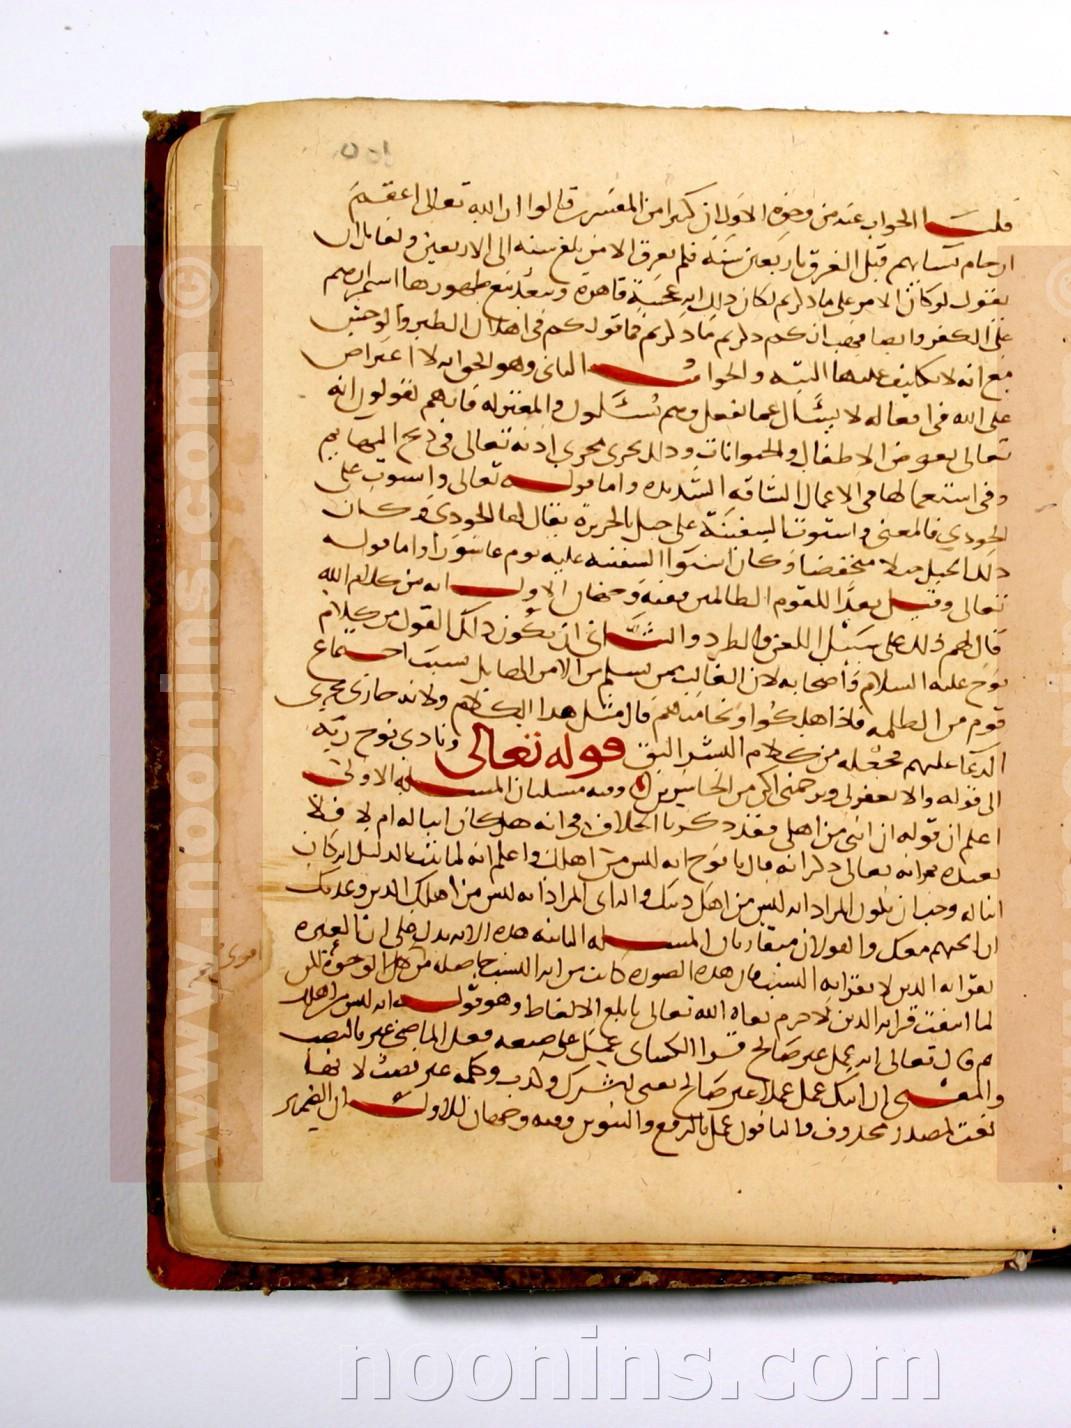 قلنا الجواب عنه من وجوه الاول ان كثيرا من المفسرين قالوا ان الله تعالى اعقم
ارحام نسايهم قبل الغرق باربعين سنة فلم يغرق الا من بلغ سنه الى الاربعين ولقايل ان
يقول لو كان الامر على ما ذكرتم لكان ذلك اية عجيبة قاهرة ويبعد مع ظهورها استمرارهم
على الكفر وايضا فهب انكم ذكرتم ما ذكرتم فما قولكم في اهلاك الطير والوحش
مع انه لا تكليف عليها البتة والجواب الثاني وهو الحق انه لا اعتراض
على الله في افعاله لا يسئل عما يفعل وهم يسئلون والمعتزلة فانهم يقولون انه
تعالى يعوض الاطفال والحيوانات وذلك يجري مجرى اذنه تعالى في ذبح البهايم
وفي استعمالها في الاعمال الشاقة الشديدة واما قوله تعالى واستوت على
الجودي فالمعنى واستوت السفينة على جبل بالجزيرة يقال لها الجودي وكان
ذلك الجبل جبلا منخفضا وكان استوا السفينة عليه يوم عاشورا واما قوله
تعالى وقيل بعدا للقوم الظالمين ففيه وجهان الاول انه من كلام الله
قال لهم ذلك على سبيل اللعن والطرد والثاني ان يكون ذلك القول من كلام
نوح عليه السلام واصحابه لان الغالب ممن يسلم من الامر الهايل بسبب اجتماع
قوم من الظلمة فاذا هلكوا ونجا منهم قال مثل هذا الكلام ولانه جاري مجرى
الدعا عليهم فجعله من كلام البشر اليق قوله تعالى ونادى نوح ربه
الى قوله والا تغفر لي وترحمني اكن من الخاسرين وفيه مسلتان المسله الاولى
اعلم ان قوله ان ابني من اهلي فقد ذكرنا الخلاف في انه هل كان ابنا له ام لا فلا
نعيده ثم انه تعالى ذكر انه قال يا نوح انه ليس من اهلك واعلم انه لما ثبت بالدليل انه كان
ابنا له وجب ان يكون المراد انه ليس من اهل دينك والثاني المراد انه ليس من اهلك الذين وعدتك
ان انجيهم معك والقولان متقاربان المسله الثانية هذه الاية تدل على ان العبرة
بقرابة الدين لا بقرابة النسب فان هذه الصورة كانت قرابة النسب حاصلة من كل الوجوه لكن
لما انتفت قرابة الدين لا جرم نفاه الله تعالى بابلغ الالفاظ وهو قوله انه ليس من اهلك
ثم قال تعالى انه عمل غير صالح قرا الكساي عمل على صيغة فعل الماضي غير بالنصب
والمعنى ان ابنك عمل عملا غير صالح يعني اشرك وكذب وكلمة غير نصب لانها
نعت لمصدر محذوف والباقون عمل بالرفع والتنوين وفيه وجهان الاول ان الضمير
www.noonins.com ©
noonins.com